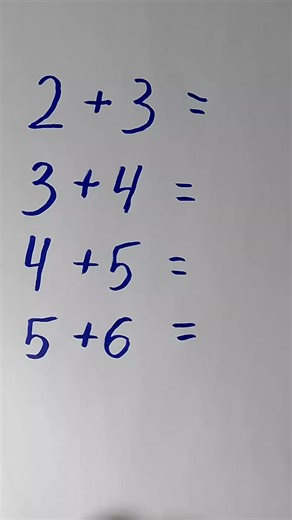 2 + 3 =
3 + 4 =
4 + 5 =
5 + 6 =